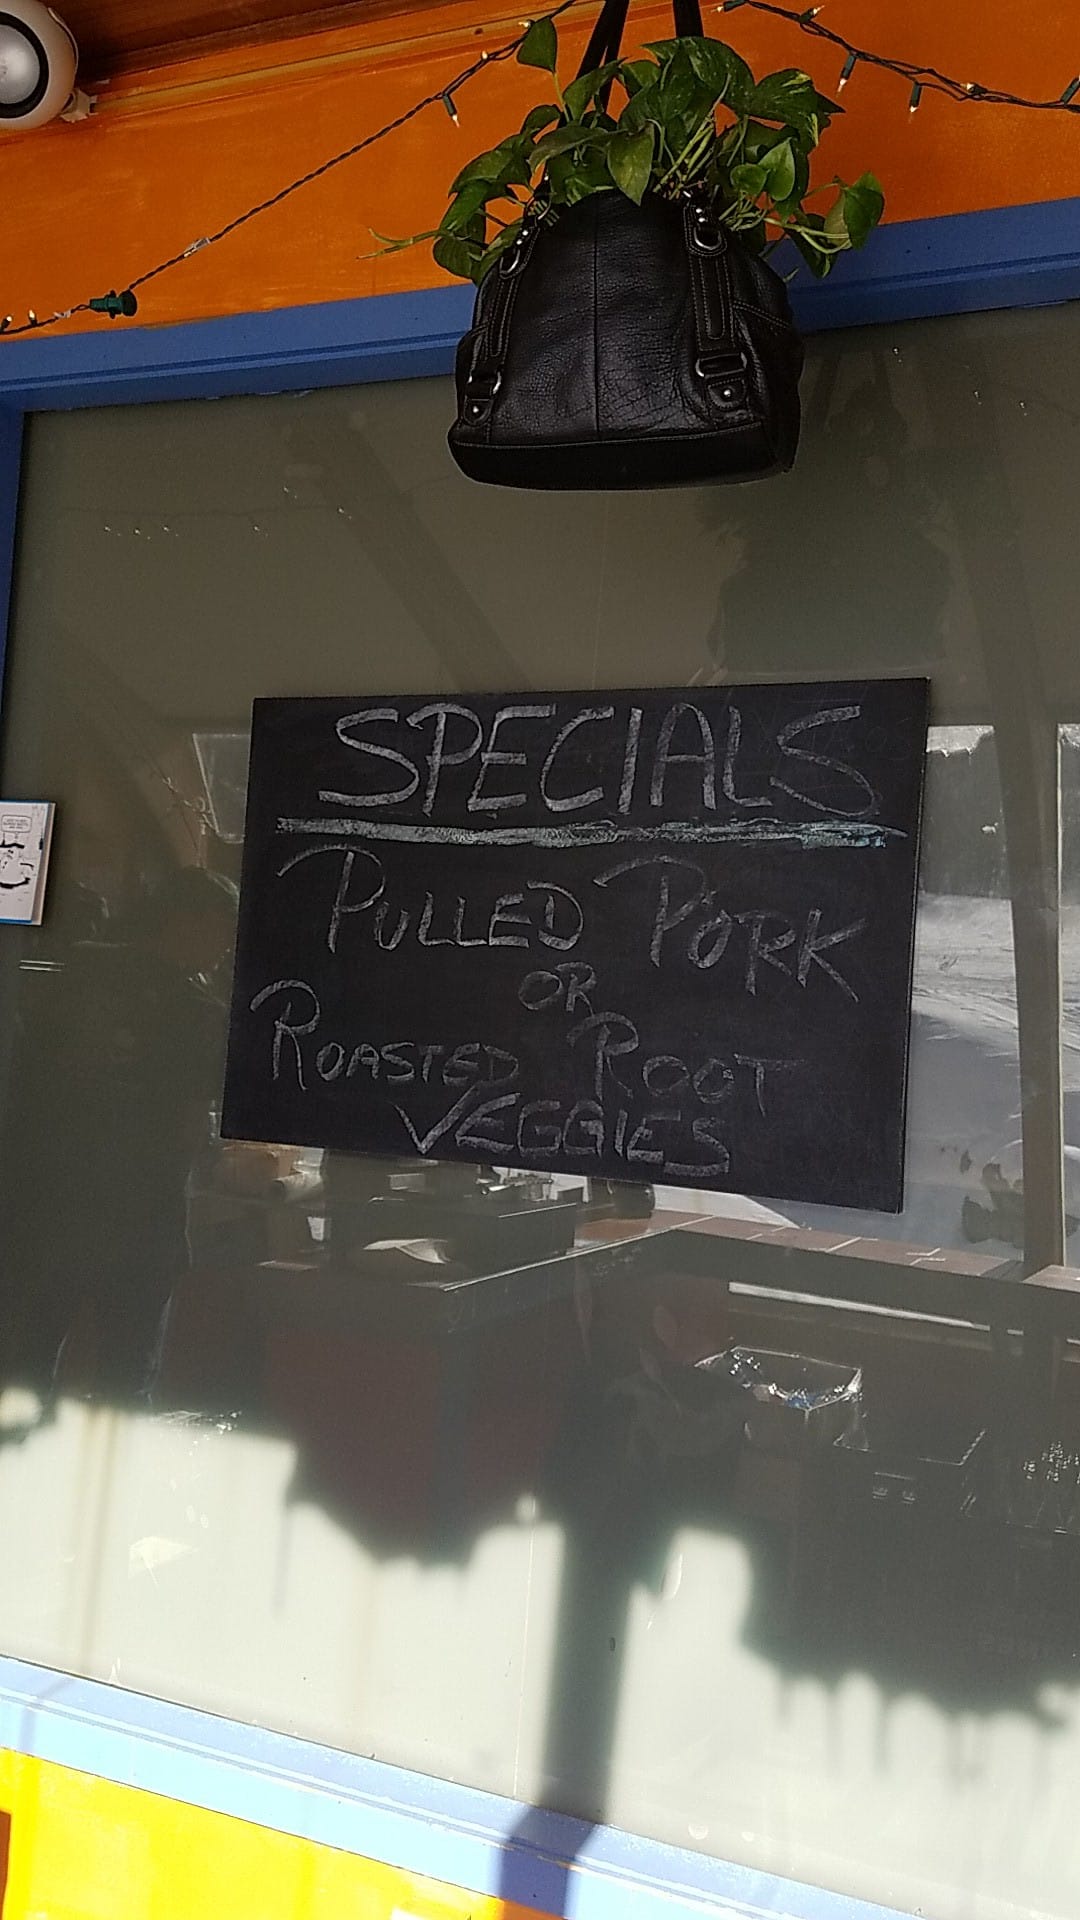 SPECIALS
PULLED PORK
OR
ROASTED ROOT
VEGGIES